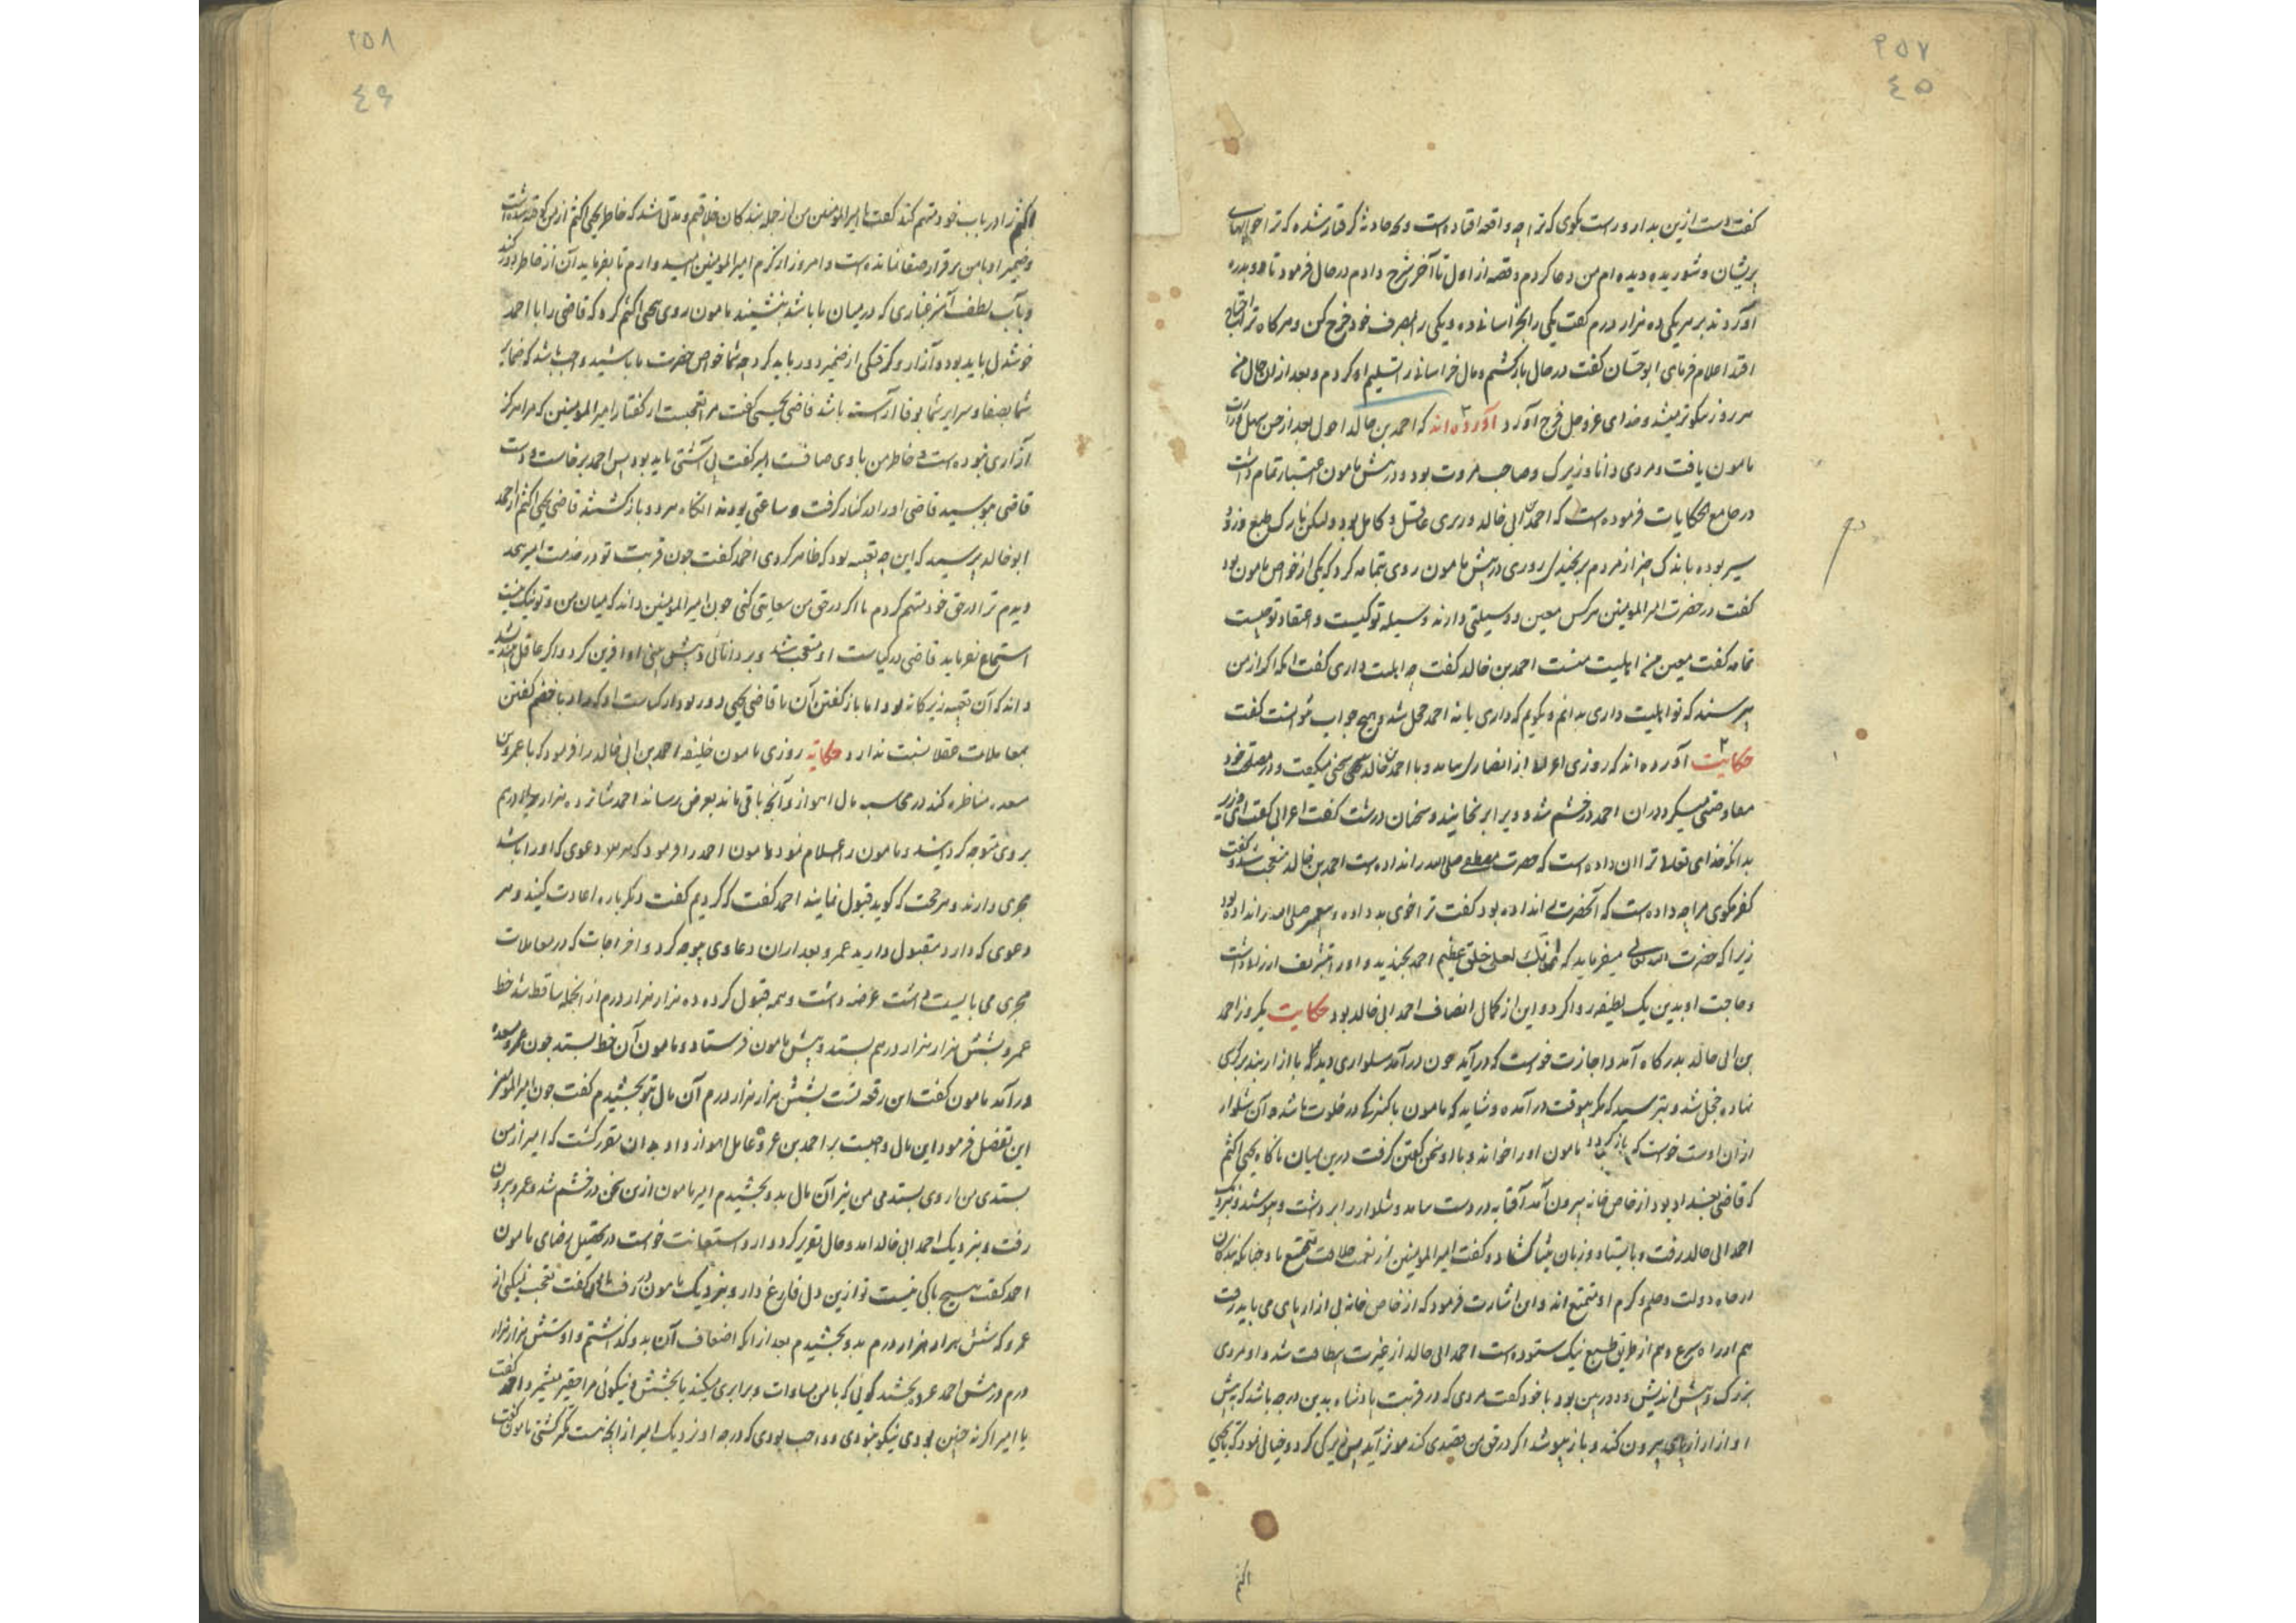 ٢٥٧
٤٥
کفت است ازین بدار و راست بکوی که ترا چه واقعه افتاده است و چه حادثه کرفتار شده که ترا
پریشان و شوریده دیده ام من دعا کردم و قصه از اول تا آخر شرح دادم در حال فرمود تا دو بدره
آوردند بر هر یکی ده هزار درم کفت یکی را بخراسانی ده و یکی را بصرف خود خرج کن و هرکاه ترا احتیاج
افتد اعلام فرمای ابو حسان کفت در حال بازکشتم و مال خراسانی را تسلیم او کردم و بعد از ان حال من
هر روز نیکوتر میشد و خدای عز و جل فرج آورد آورده اند که احمد بن خالد احول بعد از حسن سهل وزارت
مامون یافت و مردی دانا و زیرک و صاحب مروت بود و در پیش مامون اعتبار تمام داشت
در جامع الحکایات فرموده است که احمد بن ابی خالد وزیری عاقل و کامل بود ولیکن نازک طبع و زود
سیر بوده باندک چیز از مردم برنجیدی روزی در پیش مامون روی بثمامه کرد که یکی از خواص مامون بود
کفت در حضرت امیرالمومنین هرکس معین و وسیلتی دارند وسیله تو کیست و اعتقاد تو چیست
ثمامه کفت معین من اهلیت منست احمد بن خالد کفت چه اهلیت داری کفت انکه اکر از من
پرسند که تو اهلیت داری بدانم و بکویم که داری یا نه احمد خجل شد و هیچ جواب نتوانست کفت
حکایت آورده اند که روزی اعرابی از انصار بیامد و با احمد بن خالد سخنی میکفت و در مصلحت خود
معاوضتی میکرد در ان احمد در خشم شد و ویرا برنجانید و سخنان درشت کفت اعرابی کفت ای وزیر
بدانکه خدای تعالی ترا ان داده است که حضرت مصطفی صلی الله را نداده است احمد بن خالد متعجب شد و کفت
کفر مکوی مرا چه داده است که آنحضرت را نداده بود کفت ترا خوی بد داده و پیغمبر صلی الله را نداده بود
زیرا که حضرت الله تعالی میفرماید که انک لعلی خلق عظیم احمد بخندید و او را تشریف ارزانی داشت
و حاجت او بدین یک لطیفه روا کرد و این از کمال انصاف احمد ابی خالد بود حکایت یکروز احمد
بن ابی خالد بدرکاه آمد و اجازت خواست که درآید چون درآمد شلواری دید با ازار بند بر کرسی
نهاده خجل شد و بترسید که مکر بیوقت درآمده و شاید که مامون با کنیزکی در خلوت باشد و آن شلوار
از ان اوست خواست که بازکردد مامون او را خواند و با او سخن کفتن کرفت درین میان ناکاه یحیی اکثم
که قاضی بغداد بود از خاص خانه بیرون آمد آفتابه در دست بیامد و شلوار را برداشت و بپوشید و نزدیک
احمد ابی خالد رفت و بایستاد و زبان بثنا کشاد و کفت امیرالمومنین از نعمت خلافت متمتع باد چنانکه بندکان
در ماه دولت و حلم و کرم او متمتع اند و این اشارت فرمود که از خاص خانه بی ازار پای می باید رفت
هم او را شرع و هم از طریق طبع نیک ستوده است احمد ابی خالد از غیرت شد و او مردی
بزرک و پیش اندیش و دوربین بود با خود کفت مردی که در قربت پادشاه بدین درجه باشد که پیش
او ازار از پای بیرون کند و باز بپوشد اکر در حق من قصدی کند موثر آید پس زیرکی کرد و خیالی نمود که یحیی
اکثم
٢٥٨
٤٦
اکثم را در باب خود متهم کند کفت یا امیرالمومنین من از جمله بندکان خلافتم و مدتی شد که خاطر یحیی اکثم از من کوفته شده است
و ضمیر او با من بر قرار صفا نمانده است و امروز از کرم امیرالمومنین امیدوارم تا بفرماید آن از خاطر دور کند
و بآب لطف آن غباری که در میان ما باشد بنشیند مامون روی بیحیی اکثم کرد که قاضی را با احمد
خوشدل باید بود و آزار و کرفتکی از ضمیر دور باید کرد چه شما خواص حضرت ما باشید واجب باشد که ضمایر
شما بصفا و سرایر شما بوفا آراسته باشد قاضی یحیی کفت مرا تعجبست از کفتار امیرالمومنین که مرا هرکز
آزاری نبوده است و خاطر من با وی صافست امیر کفت بی آشتی باید بود پس احمد برخاست و دست
قاضی ببوسید قاضی او را در کنار کرفت و ساعتی بودند انکاه هر دو بازکشتند قاضی یحیی اکثم از احمد
ابو خالد پرسید که این چه تعبیه بود که ظاهر کردی احمد کفت چون قربت تو در خدمت امیر بحد
دیدم ترا در حق خود متهم کردم تا اکر در حق من سعایتی کنی چون امیرالمومنین داند که میان من و تو نیک نیست
استماع نفرماید قاضی در کیاست او متعجب شد و بر دانائی و پیش بینی او آفرین کرد و اکر عاقل اندیشد
داند که آن تعبیه زیرکانه بود اما باز کفتن آن با قاضی یحیی دور بود از کیاست او که راز با خصم کفتن
بمعاملات عقلا نسبت ندارد حکایة روزی مامون خلیفه احمد بن ابی خالد را فرمود که با عمرو بن
مسعده مناظره کند در محاسبه مال اهواز و آنچه باقی ماند بعرض رساند احمد شانزده هزار هزار درم
بر وی متوجه کردانید و مامون را اعلام نمود مامون احمد را فرمود که هر دعوی که او را باشد
مجری دارند و هر حجت که کوید قبول نمایند احمد کفت که کردیم کفت دیکر باره اعادت کنید و هر
دعوی که دارد مقبول دارید عمرو بعد از ان دعاوی موجه کرد و اخراجات که در معاملات
مجری می بایست داشت عرضه داشت و همه قبول کرده ده هزار هزار درم از انجمله ساقط شد خط
عمرو بشش هزار هزار درهم بستد و پیش مامون فرستاد و مامون آن خط بستد چون عمرو مسعده
درآمد مامون کفت این رقعه تست بشش هزار هزار درم آن مال بتو بخشیدم کفت چون امیرالمومنین
این تفضل فرمود این مال واجبست بر احمد بن عروه عامل اهواز و او بدان متور کشت که امیر از من
بستدی من از وی بستدمی من نیز آن مال بدو بخشیدم امیر مامون ازین سخن در خشم شد و عمرو بیرون
رفت و بنزدیک احمد ابی خالد آمد و حال تقریر کرد و ازو استعانت خواست در تحصیل رضای مامون
احمد کفت هیچ باکی نیست تو ازین دل فارغ دار و بنزدیک مامون در رفت مامون کفت تعجب نمیکنی از
عمرو که شش هزار هزار درم بدو بخشیدم بعد از انکه اضعاف آن بدو کذاشتم و او شش هزار هزار
درم در پیش احمد عروه بخشید کوئی که با من مساوات و برابری میکند یا بخشش و نیکوئی مرا حقیر میشمرد احمد کفت
یا امیر اکر نه چنین بودی نیکو نبودی و واجب بودی که درجه او نزدیک امیر از انچه هست کمتر کشتی مامون کفت